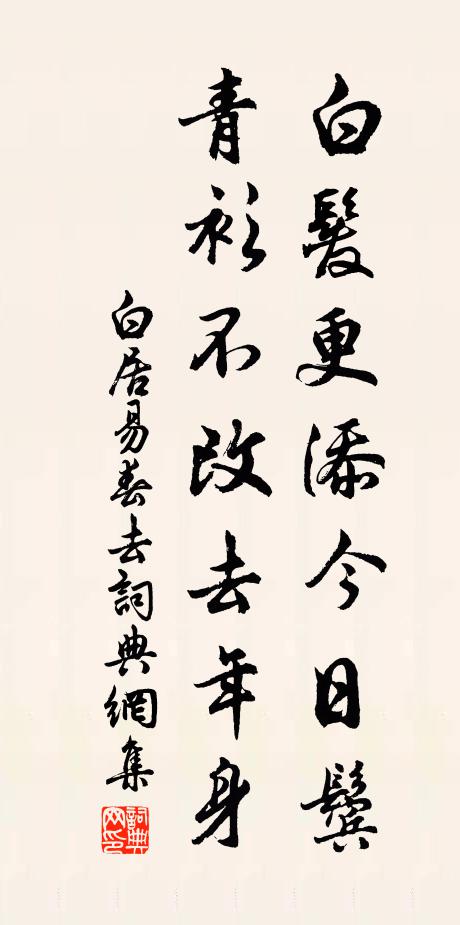 白髮更添今日鬢
青衫不改去年身
白居易春去詞典網集
詞典網印